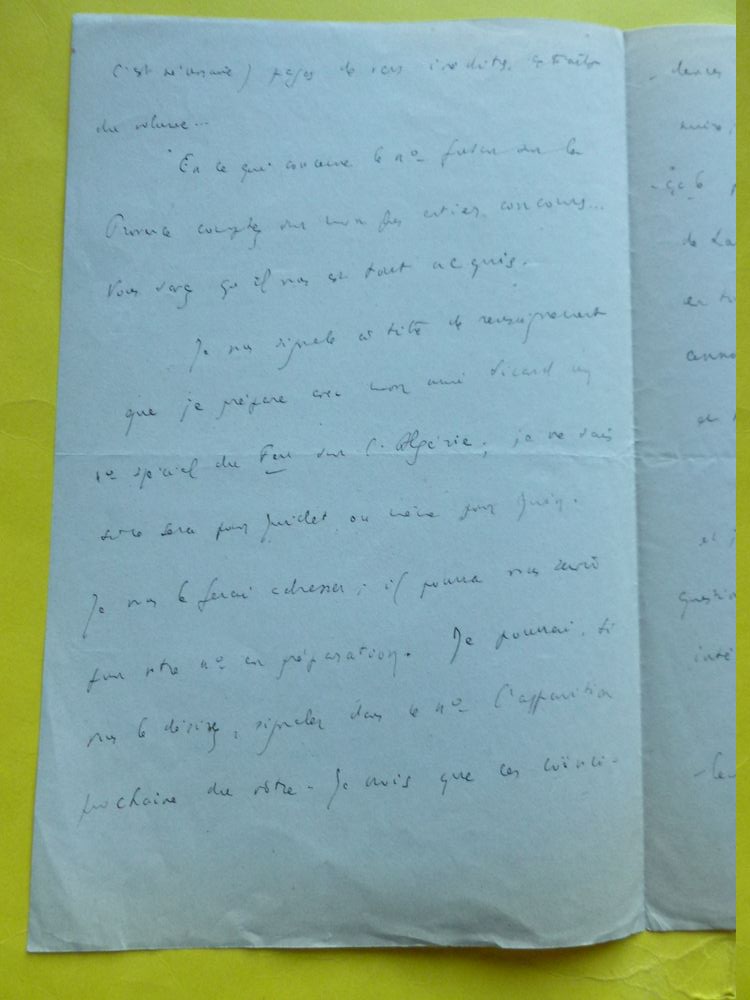 c'est nécessaire) pages de vers inédits, extraites
du volume...
En ce qui concerne le nº futur sur la
Provence comptez sur mon plus entier concours...
Vous savez qu'il vous est tout acquis.
Je vous signale à titre de renseignement
que je prépare avec mon ami Sicard un
nº spécial du Feu sur l'Algérie; je ne sais
si ce sera pour Juillet ou même pour Juin.
Je vous le ferai adresser; il pourra vous servir
pour votre nº en préparation. Je pourrai, si
vous le désirez, signaler dans le nº l'apparition
prochaine du vôtre. Je crois que ces coïnci-
- dences
de La
et